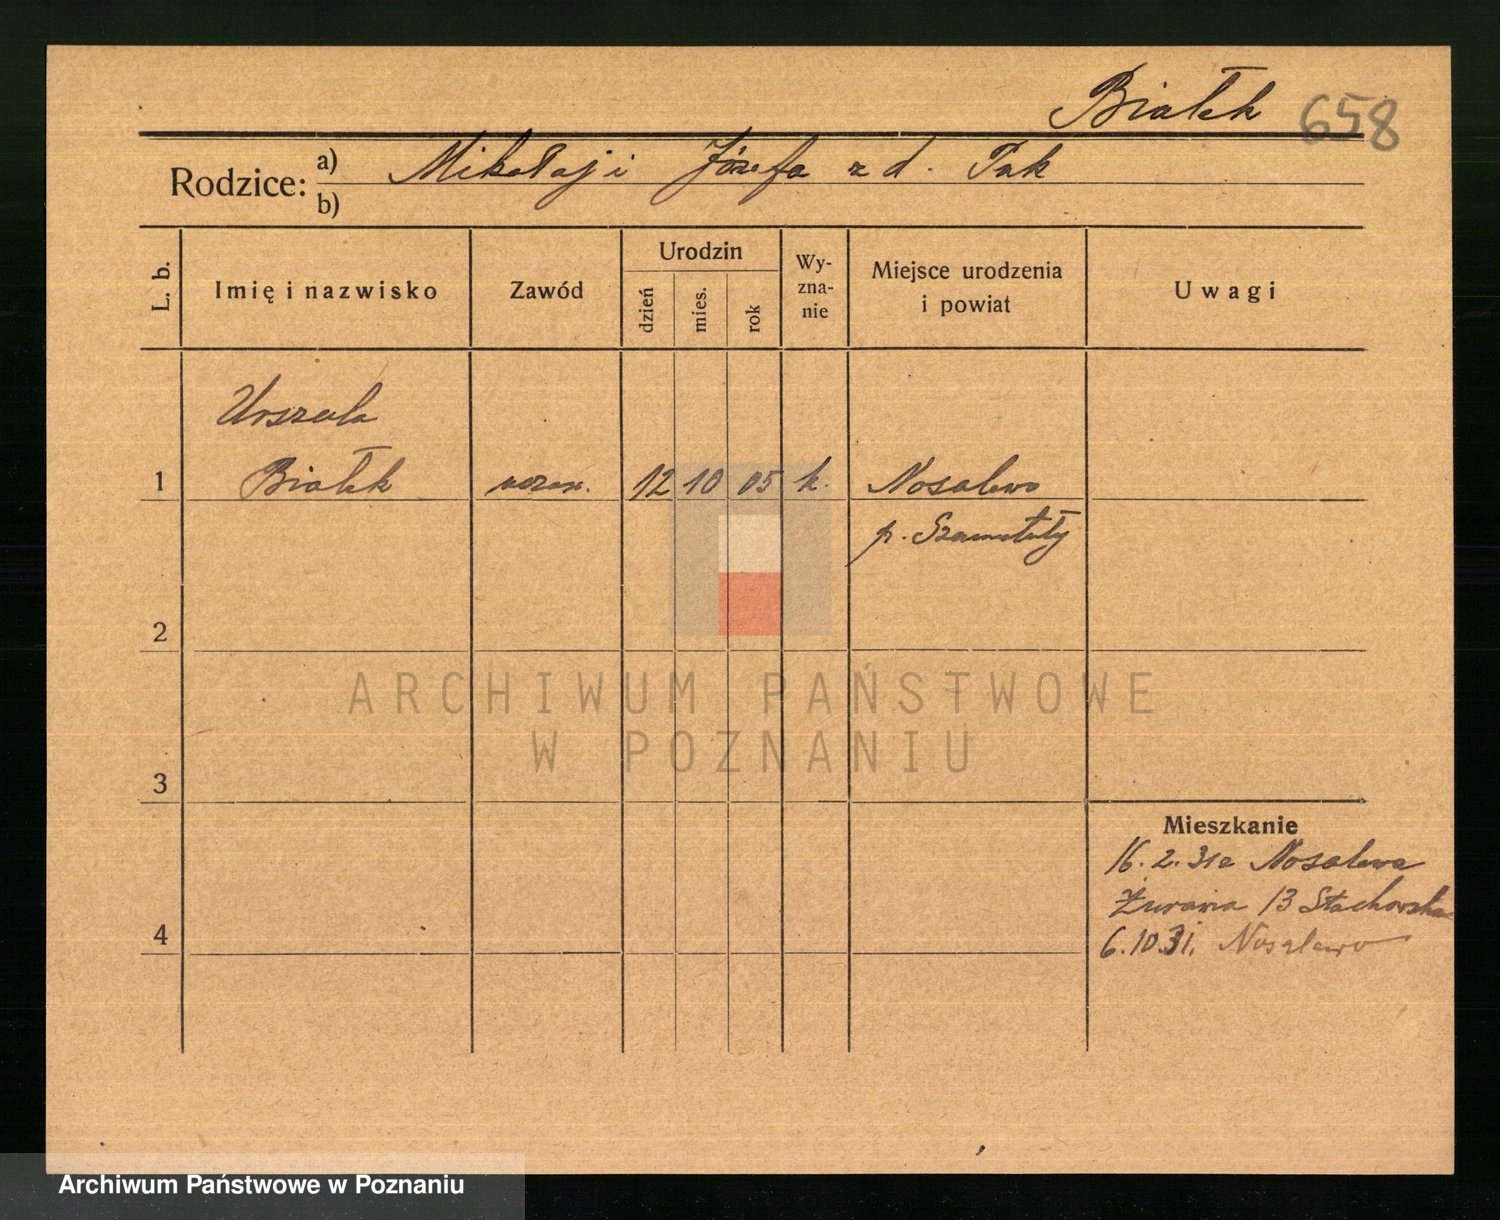 Białek 658
Rodzice: a) Mikołaj i Józefa z d. Pak
b)
L. b.
Imię i nazwisko
Zawód
Urodzin
dzień
mies.
rok
Wy-
zna-
nie
Miejsce urodzenia
i powiat
Uwagi
Urszula
1 Białek uczen. 12 10 05 k. Nosalewo
p. Szamotuły
2
ARCHIWUM PAŃSTWOWE
W POZNANIU
3
Mieszkanie
16. 2. 31 z Nosalewa
Żurawia 13 Stachowska
4 6. 10. 31. Nosalewo
Archiwum Państwowe w Poznaniu